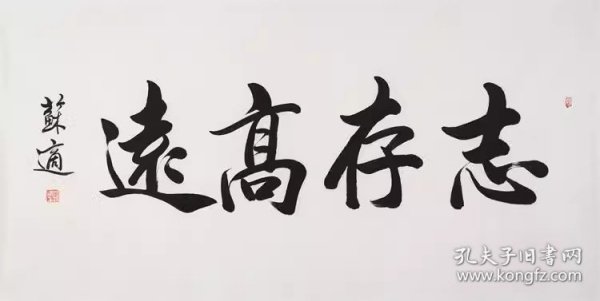 志存高遠
蘇適
孔夫子旧书网
www.kongfz.com